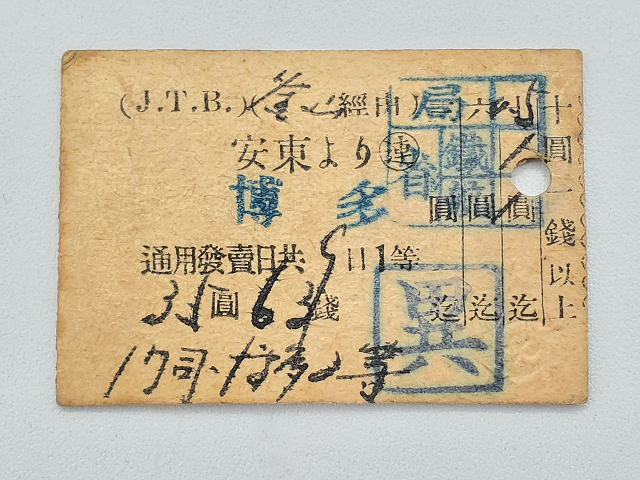 (J.T.B.)(釜山經由)
安東より連
博多
通用發賣日共5日1等
35圓63錢
門司・博多2等
局
異
圓 圓 圓
迄 迄 迄
十圓一錢以上